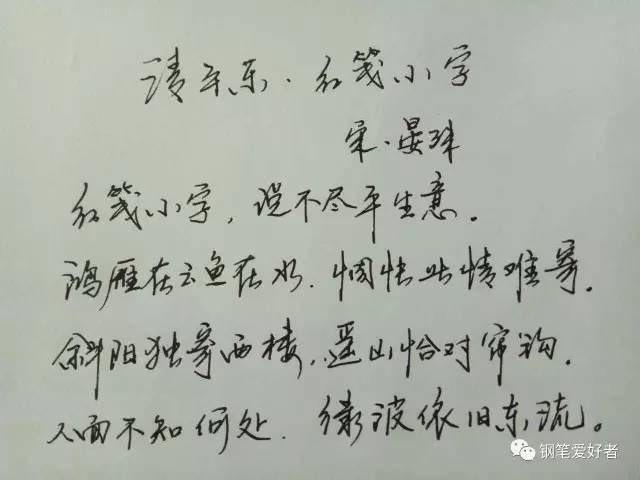 清平乐·红笺小字
宋·晏殊
红笺小字,说不尽平生意.
鸿雁在云鱼在水.惆怅此情难寄.
斜阳独寄西楼,遥山恰对帘钩.
人面不知何处.绿波依旧东流。
钢笔爱好者